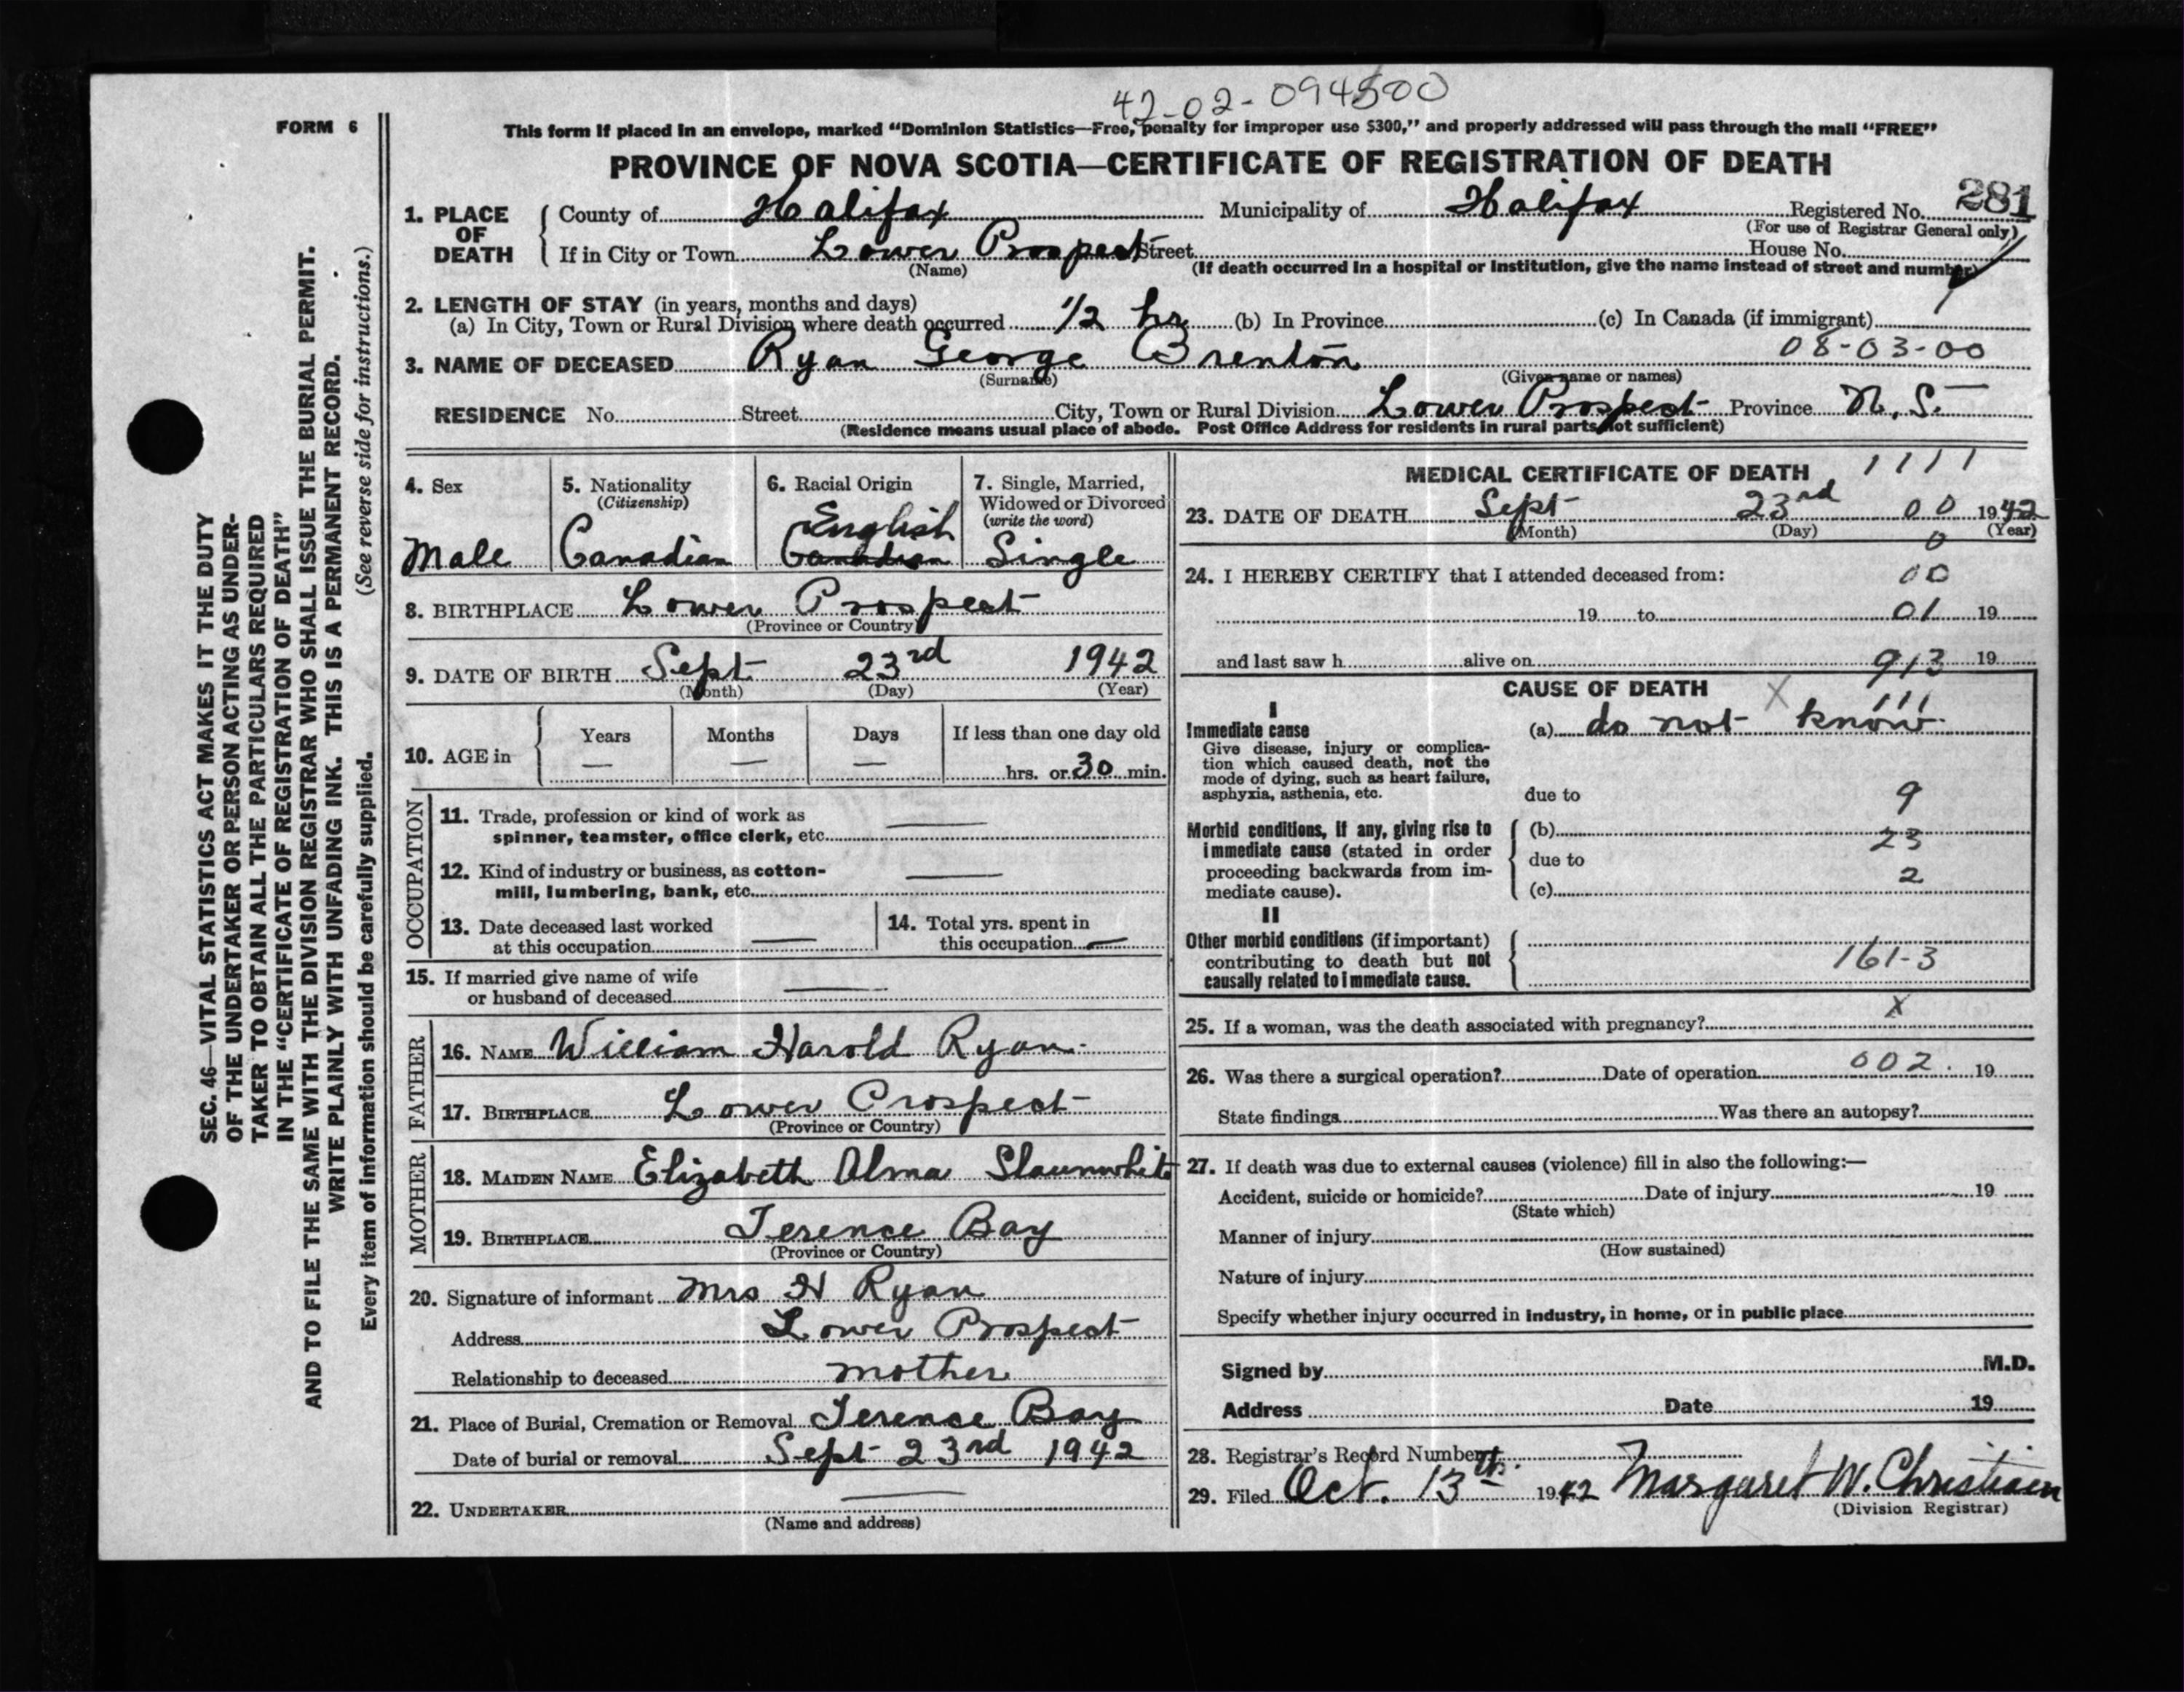 42-02-094500
FORM 6
This form if placed in an envelope, marked "Dominion Statistics—Free, penalty for improper use $300," and properly addressed will pass through the mail "FREE"
PROVINCE OF NOVA SCOTIA—CERTIFICATE OF REGISTRATION OF DEATH
1. PLACE OF DEATH County of Halifax Municipality of Halifax Registered No. 281
(For use of Registrar General only)
If in City or Town Lower Prospect Street House No.
(Name) (If death occurred in a hospital or institution, give the name instead of street and number)
2. LENGTH OF STAY (in years, months and days)
(a) In City, Town or Rural Division where death occurred 1/2 hr (b) In Province (c) In Canada (if immigrant)
3. NAME OF DECEASED Ryan George Brenton 08-03-00
(Surname) (Given name or names)
RESIDENCE No. Street City, Town or Rural Division Lower Prospect Province N.S.
(Residence means usual place of abode. Post Office Address for residents in rural parts not sufficient)
4. Sex
Male
5. Nationality
(Citizenship)
Canadian
6. Racial Origin
English
Canadian
7. Single, Married,
Widowed or Divorced
(write the word)
Single
8. BIRTHPLACE Lower Prospect
(Province or Country)
9. DATE OF BIRTH Sept 23rd 1942
(Month) (Day) (Year)
10. AGE in Years Months Days If less than one day old
— — — hrs. or 30 min.
OCCUPATION
11. Trade, profession or kind of work as
spinner, teamster, office clerk, etc. —
12. Kind of industry or business, as cotton-
mill, lumbering, bank, etc. —
13. Date deceased last worked
at this occupation —
14. Total yrs. spent in
this occupation —
15. If married give name of wife
or husband of deceased —
FATHER
16. NAME William Harold Ryan
17. BIRTHPLACE Lower Prospect
(Province or Country)
MOTHER
18. MAIDEN NAME Elizabeth Alma Slaunwhite
19. BIRTHPLACE Terence Bay
(Province or Country)
20. Signature of informant Mrs H Ryan
Address Lower Prospect
Relationship to deceased mother
21. Place of Burial, Cremation or Removal Terence Bay
Date of burial or removal Sept 23rd 1942
22. UNDERTAKER —
(Name and address)
MEDICAL CERTIFICATE OF DEATH 1111
23. DATE OF DEATH Sept 23rd 00 1942
(Month) (Day) (Year)
0
24. I HEREBY CERTIFY that I attended deceased from: 00
19 to 01 19
and last saw h alive on 913 19
CAUSE OF DEATH X
I
Immediate cause (a) do not know
Give disease, injury or complica-
tion which caused death, not the
mode of dying, such as heart failure,
asphyxia, asthenia, etc.
due to 9
Morbid conditions, if any, giving rise to
immediate cause (stated in order
proceeding backwards from im-
mediate cause).
(b) 23
due to
(c) 2
II
Other morbid conditions (if important)
contributing to death but not
causally related to immediate cause.
161-3
25. If a woman, was the death associated with pregnancy? X
26. Was there a surgical operation? Date of operation 002. 19
State findings Was there an autopsy?
27. If death was due to external causes (violence) fill in also the following:—
Accident, suicide or homicide? Date of injury 19
(State which)
Manner of injury
(How sustained)
Nature of injury
Specify whether injury occurred in industry, in home, or in public place
Signed by M.D.
Address Date 19
28. Registrar's Record Number
29. Filed Oct. 13th. 1942 Margaret W. Christian
(Division Registrar)
SEC. 46—VITAL STATISTICS ACT MAKES IT THE DUTY
OF THE UNDERTAKER OR PERSON ACTING AS UNDER-
TAKER TO OBTAIN ALL THE PARTICULARS REQUIRED
IN THE "CERTIFICATE OF REGISTRATION OF DEATH"
AND TO FILE THE SAME WITH THE DIVISION REGISTRAR WHO SHALL ISSUE THE BURIAL PERMIT.
WRITE PLAINLY WITH UNFADING INK. THIS IS A PERMANENT RECORD.
Every item of information should be carefully supplied. (See reverse side for instructions.)